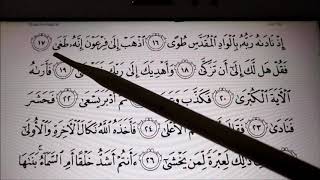 إِذْ نَادَىٰهُ رَبُّهُۥ بِٱلْوَادِ ٱلْمُقَدَّسِ طُوًى ١٦ ٱذْهَبْ إِلَىٰ فِرْعَوْنَ إِنَّهُۥ طَغَىٰ ١٧
فَقُلْ هَل لَّكَ إِلَىٰٓ أَن تَزَكَّىٰ ١٨ وَأَهْدِيَكَ إِلَىٰ رَبِّكَ ١٩ فَأَرَىٰهُ
ٱلْءَايَةَ ٱلْكُبْرَىٰ ٢٠ فَكَذَّبَ أَدْبَرَ يَسْعَىٰ ٢٢ فَحَشَرَ
فَنَادَىٰ ٢٣ ٱلْأَعْلَىٰ ٢٤ فَأَخَذَهُ ٱللَّهُ نَكَالَ ٱلْءَاخِرَةِ وَٱلْأُولَىٰٓ
ذَٰلِكَ لَعِبْرَةً لِّمَن يَخْشَىٰٓ ٢٦ ءَأَنتُمْ أَشَدُّ خَلْقًا أَمِ ٱلسَّمَآءُ بَنَىٰهَا